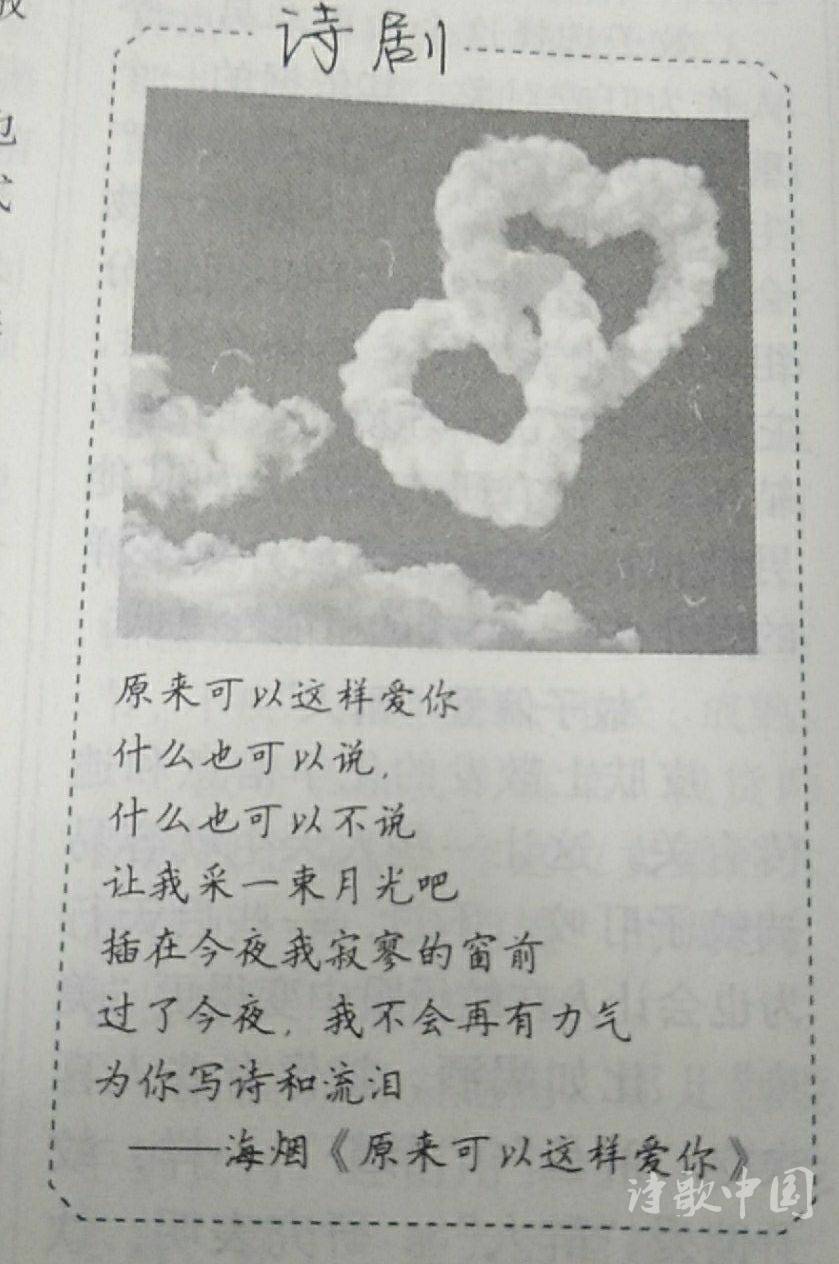 诗剧
原来可以这样爱你
什么也可以说，
什么也可以不说
让我采一束月光吧
插在今夜我寂寥的窗前
过了今夜，我不会再有力气
为你写诗和流泪
——海烟《原来可以这样爱你》
诗歌中国